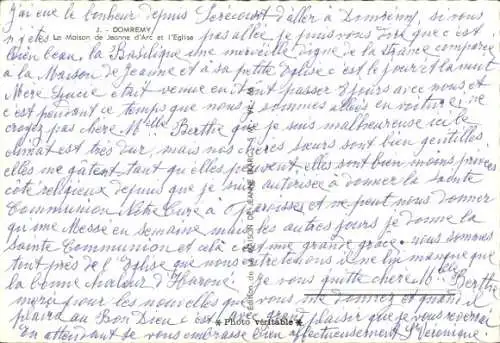 J'ai eue le bonheur depuis Serécourt d'aller à Domremy, si vous
2. - DOMREMY
n'y êtes pas allée je puis vous dire que c'est
La Maison de Jeanne d'Arc et l'Eglise
bien beau, la Basilique une merveille digne de la Sainte comparée
à la Maison de Jeanne et à sa petite Eglise c'est le jour et la nuit
Mère Lucie était venue en Mai passer 8 jours avec nous et
c'est pendant ce temps que nous y sommes allées en voiture, ne
croyez pas chère Melle Berthe que je suis malheureuse ici le
climat est très dur, mais nos chères Sœurs sont bien gentilles
elles me gâtent tant qu'elles peuvent, elles sont bien moins privées
côté religieux depuis que je suis autorisée à donner la sainte
Communion Notre Curé à paroisses et ne peut nous donner
qu'une Messe en semaine mais les autres jours je donne la
sainte Communion et celà c'est une grande grâce. nous sommes
tant près de l'Eglise que nous entretenons il ne lui manque que
la bonne Mr d'Haroué. Je vous quitte chère Melle Berthe
merci pour les nouvelles que vous me donnez et quand il
plaira au Bon Dieu c'est avec grand plaisir que je vous reverrai
En attendant je vous embrasse bien affectueusement Sr Véronique
★ Photo véritable ★
Edition de LA MAISON DE JEANNE D'ARC